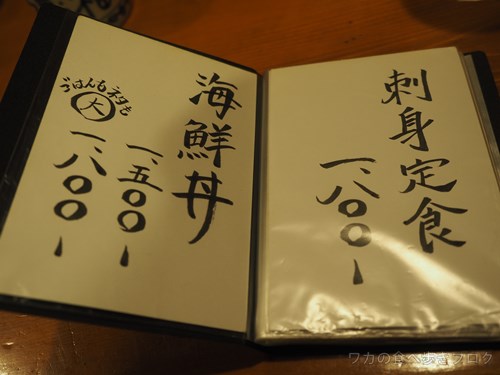 刺身定食
一、八〇〇-
海鮮丼
一、五〇〇-
ごはんもネタも
大
一、八〇〇-
ワカの食べ歩きブログ